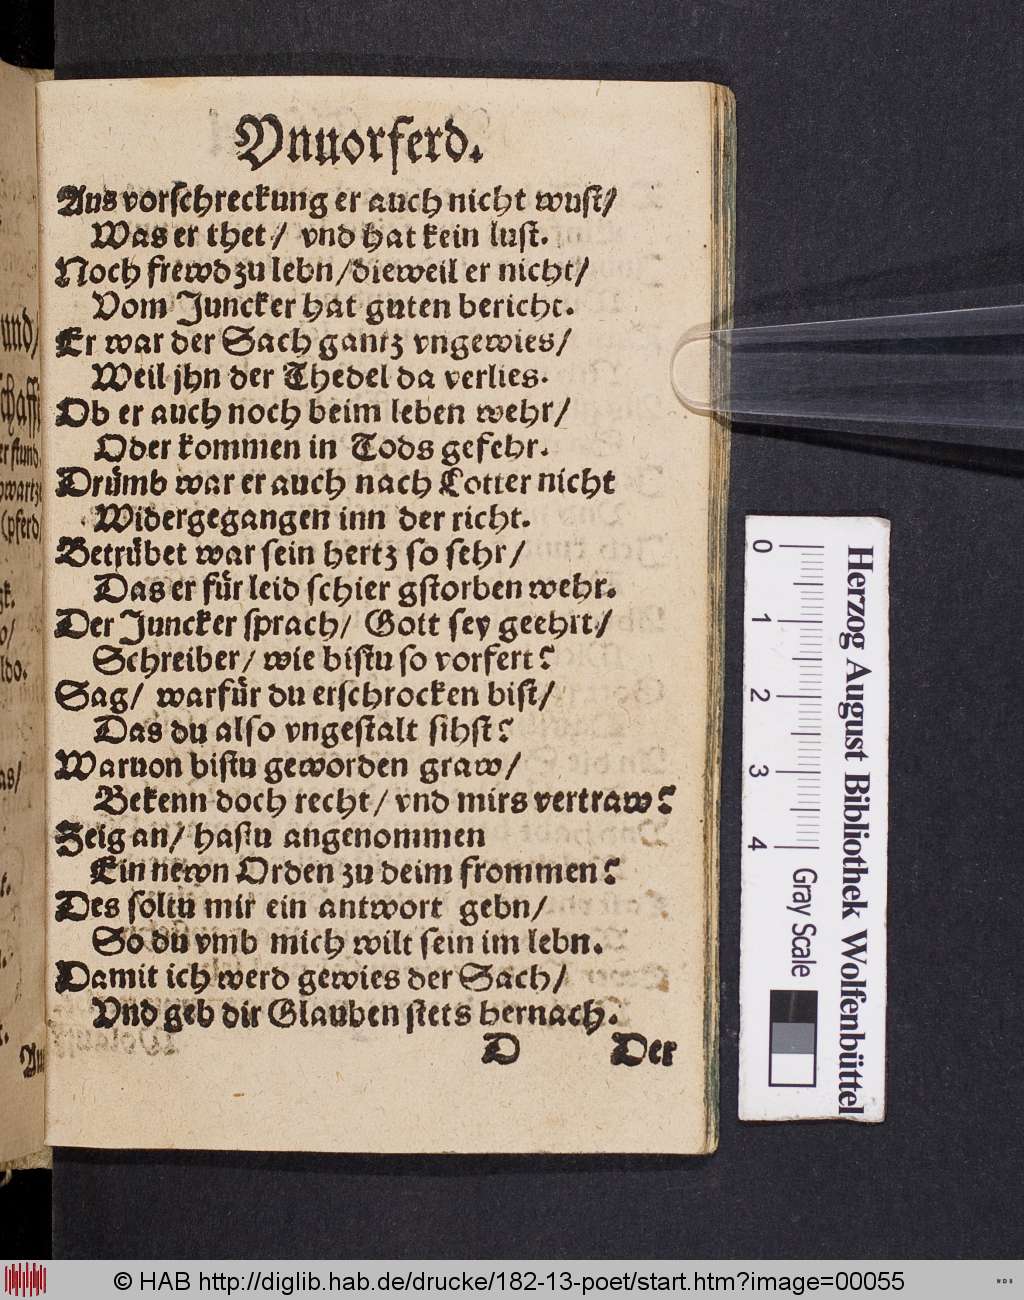 Vnuorferd.
Aus vorschreckung er auch nicht wust/
Was er thet/ vnd hat kein lust.
Noch frewd zu lebn/ dieweil er nicht/
Vom Juncker hat guten bericht.
Er war der Sach gantz vngewies/
Weil jhn der Thedel da verlies.
Ob er auch noch beim leben wehr/
Oder kommen in Tods gefehr.
Drümb war er auch nach Lotter nicht
Widergegangen inn der richt.
Betrübet war sein hertz so sehr/
Das er für leid schier gstorben wehr.
Der Juncker sprach/ Gott sey geehrt/
Schreiber/ wie bistu so vorfert?
Sag/ warfür du erschrocken bist/
Das du also vngestalt sihst?
Waruon bistu geworden graw/
Bekenn doch recht/ vnd mirs vertraw?
Zeig an/ hastu angenommen
Ein newn Orden zu deim frommen?
Des soltu mir ein antwort gebn/
So du vmb mich wilt sein im lebn.
Damit ich werd gewies der Sach/
Vnd geb dir Glauben stets hernach.
D Der
und/
schafft
er stund
(pferd
o/
ldo.
as/
0 1 2 3 4
Gray Scale
Herzog August Bibliothek Wolfenbüttel
© HAB http://diglib.hab.de/drucke/182-13-poet/start.htm?image=00055